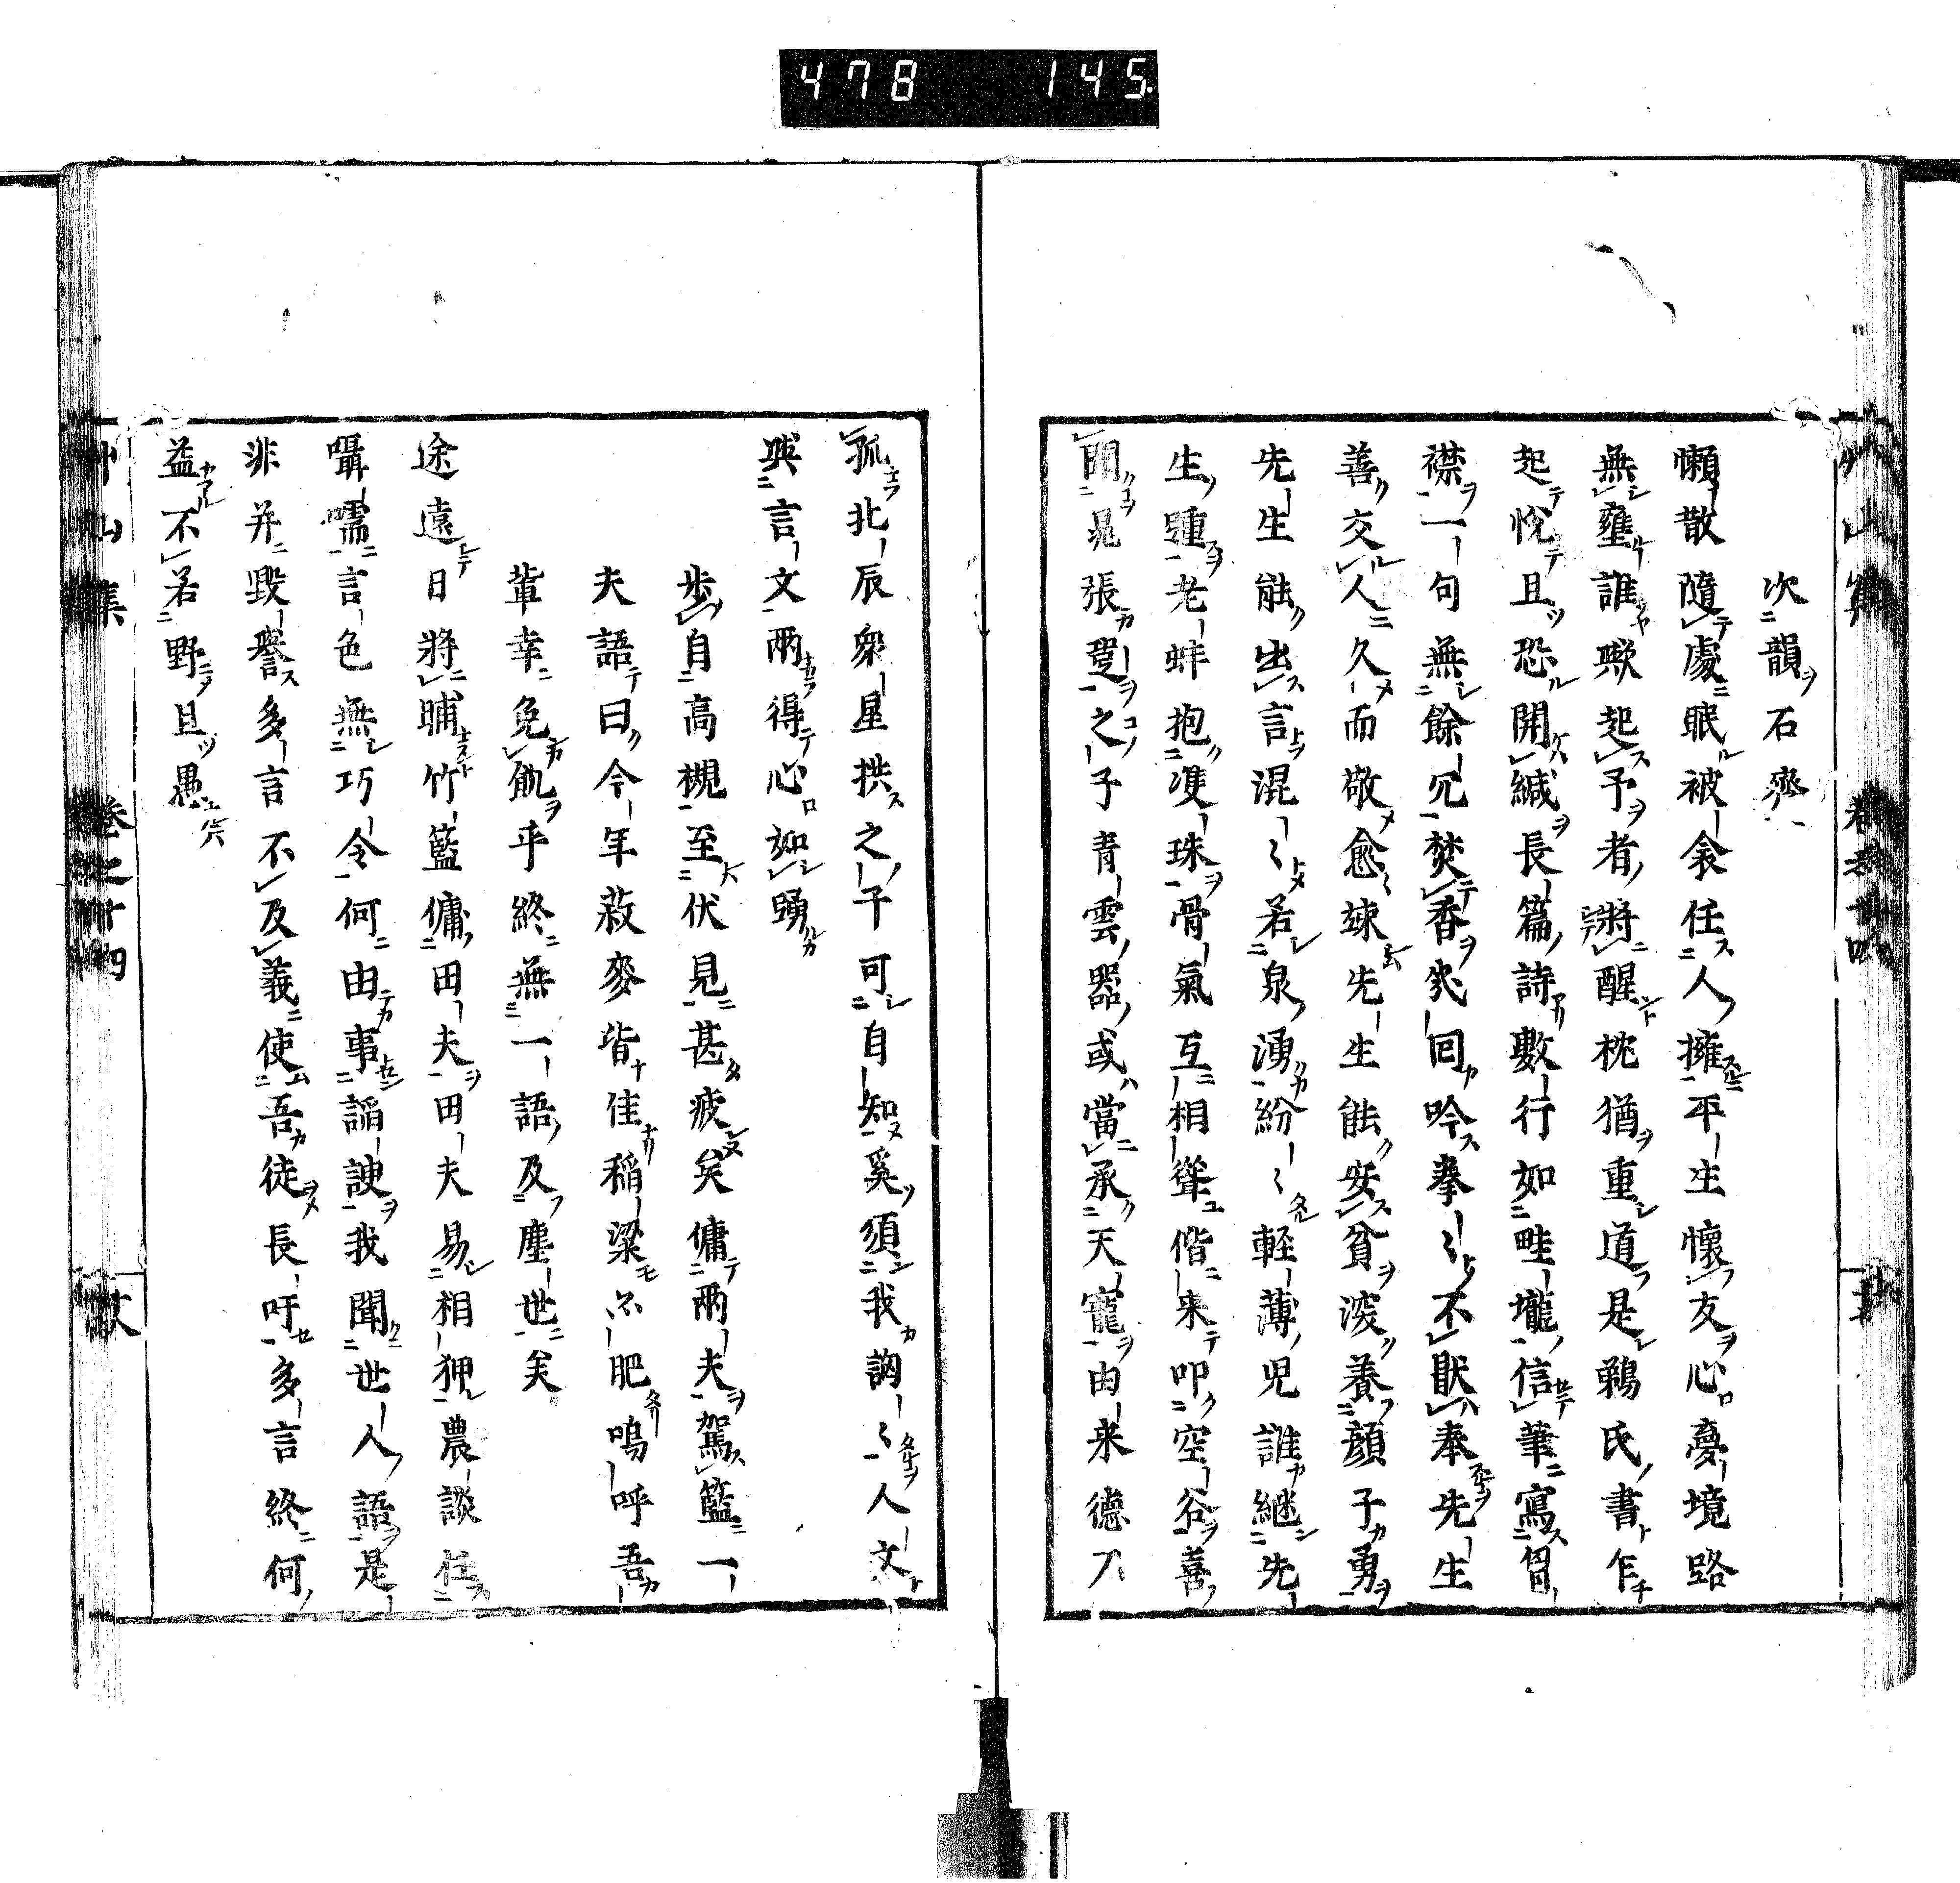 478 145
次韻石齋
懶散隨處眠被衾任人擁平生懷友心夢境路
無壅誰歟起予者將醒枕猶重道是鵜氏書乍
起悅且恐開緘長篇詩數行如畦壠信筆寫胷
襟一句無餘冗焚香幾回吟拳〻不厭奉先生
善交人久而敬愈竦先生能安貧深養顏子勇
先生能出言混〻若泉湧紛〻輕薄兒誰継先
生踵老蚌抱雙珠骨氣互相聳偕来叩空谷善
聞晁張跫之子青雲器或當承天寵由来德不
孤北辰衆星拱之子可自知奚須我詢〻人文
與言文兩得心如踴
步自高槻至伏見甚疲矣傭兩夫駕籃一
夫語曰今年菽麥皆佳稲粱亦肥嗚呼吾
輩幸免飢乎終無一語及塵世矣
途遠日將晡竹籃傭田夫田夫易相狎農談任
囁嚅言色無巧令何由事諂諛我聞世人語是
非并毀譽多言不及義使吾徒長吁多言終何
益不若野且愚
艸山集 卷之十四